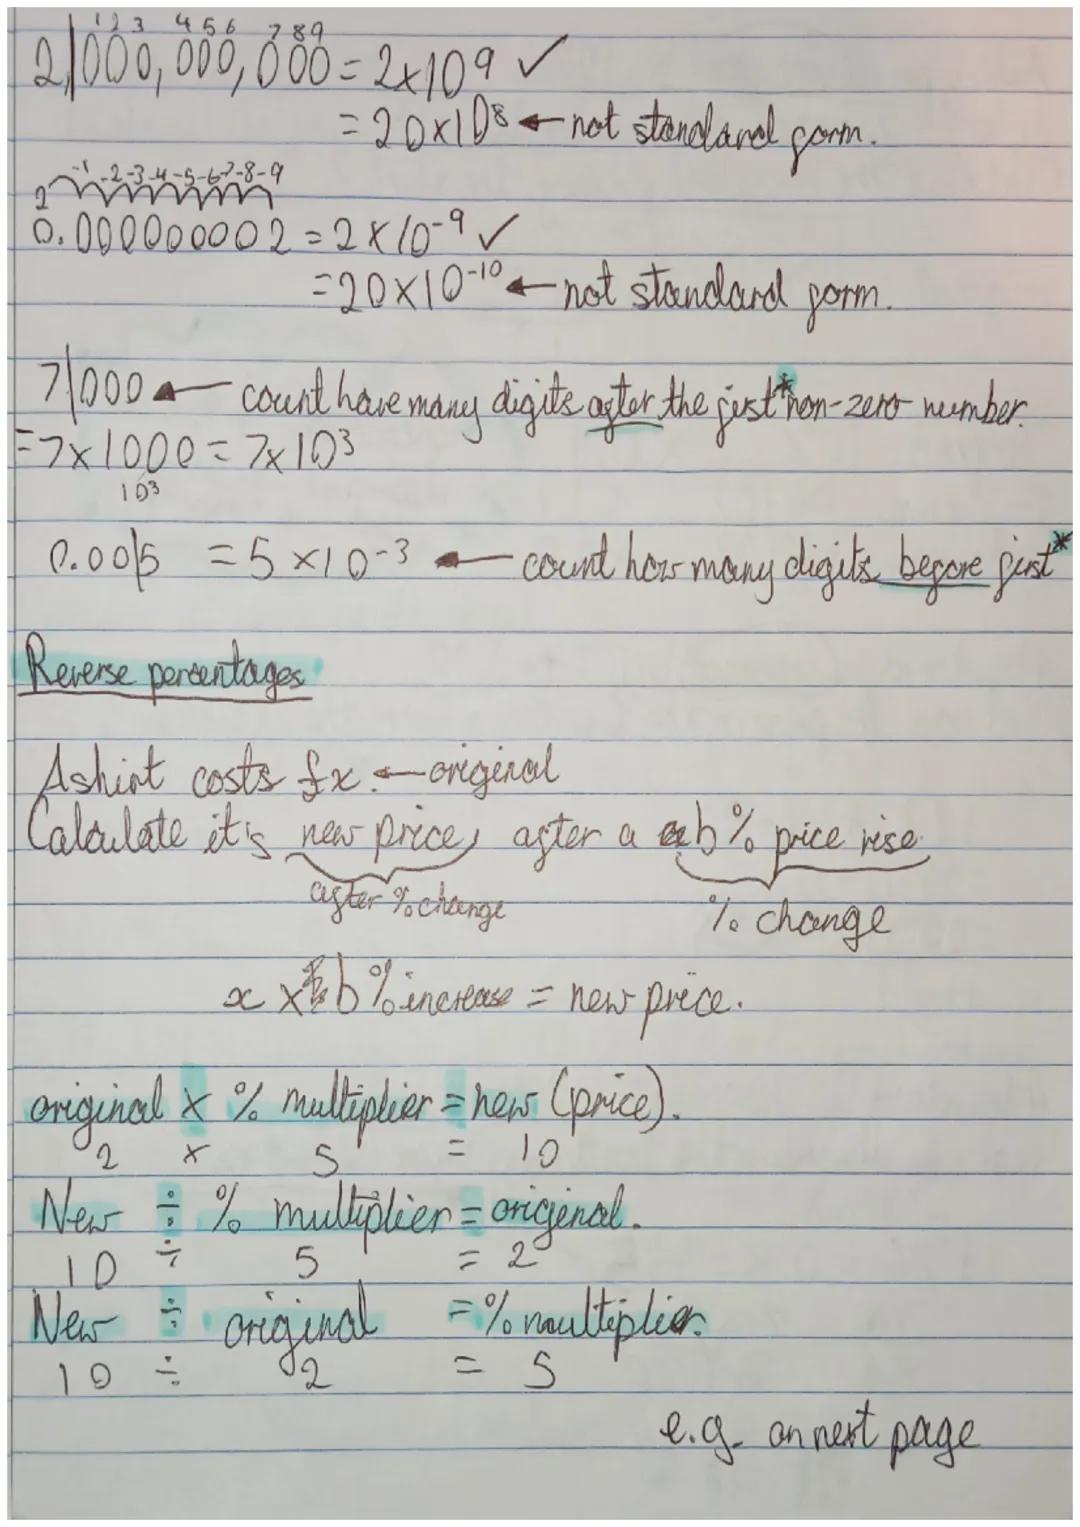 1 2 3 4 5 6 7 8 9
2,000,000,000 = 2x10⁹ ✓
= 20x10⁸ ← not standard form.
-1 -2 -3 -4 -5 -6 -7 -8 -9
2
0.000000002 = 2x10⁻⁹ ✓
= 20x10⁻¹⁰ ← not standard form.
7|000 ← count have many digits after the first* non-zero number.
= 7x1000 = 7x10³
10³
0.00|5 = 5 x10⁻³ ← count how many digits before first*
Reverse percentages
A shirt costs £x. ← original
Calculate it's new price, after a b% price rise.
after % change
% change
x x b% increase = new price.
original x % multiplier = new (price).
2 x 5 = 10
New ÷ % multiplier = original.
10 ÷ 5 = 2
New ÷ original = % multiplier.
10 ÷ 2 = 5
e.g. on next page